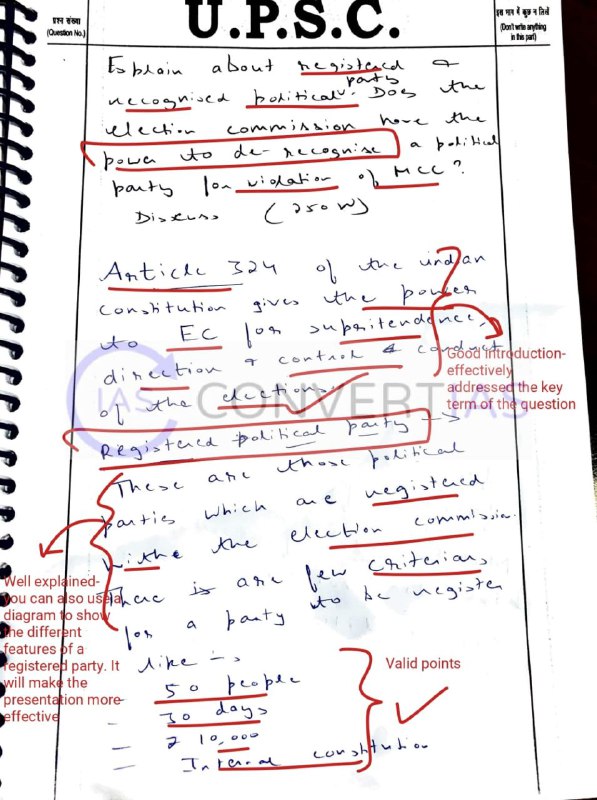 प्रश्न संख्या
(Question No.)
U.P.S.C.
इस भाग में कुछ न लिखें
(Don't write anything in this part)
Explain about registered &
recognised political party. Does the
election commission have the
power to de-recognise a political
party for violation of MCC?
Discuss (250 W)
Article 324 of the indian
constitution gives the power
to EC for supritendence,
direction & control & conduct
of the elections
Good introduction-
effectively
addressed the key
term of the question
IAS CONVERT IAS
Registered political party →
These are those political
parties which are registered
withe the election commission.
There is are few criterians
for a party to be register
like →
Well explained-
you can also use a
diagram to show
the different
features of a
registered party. It
will make the
presentation more-
effective
50 people
- 30 days
- ₹ 10,000
- Internal constitution
Valid points